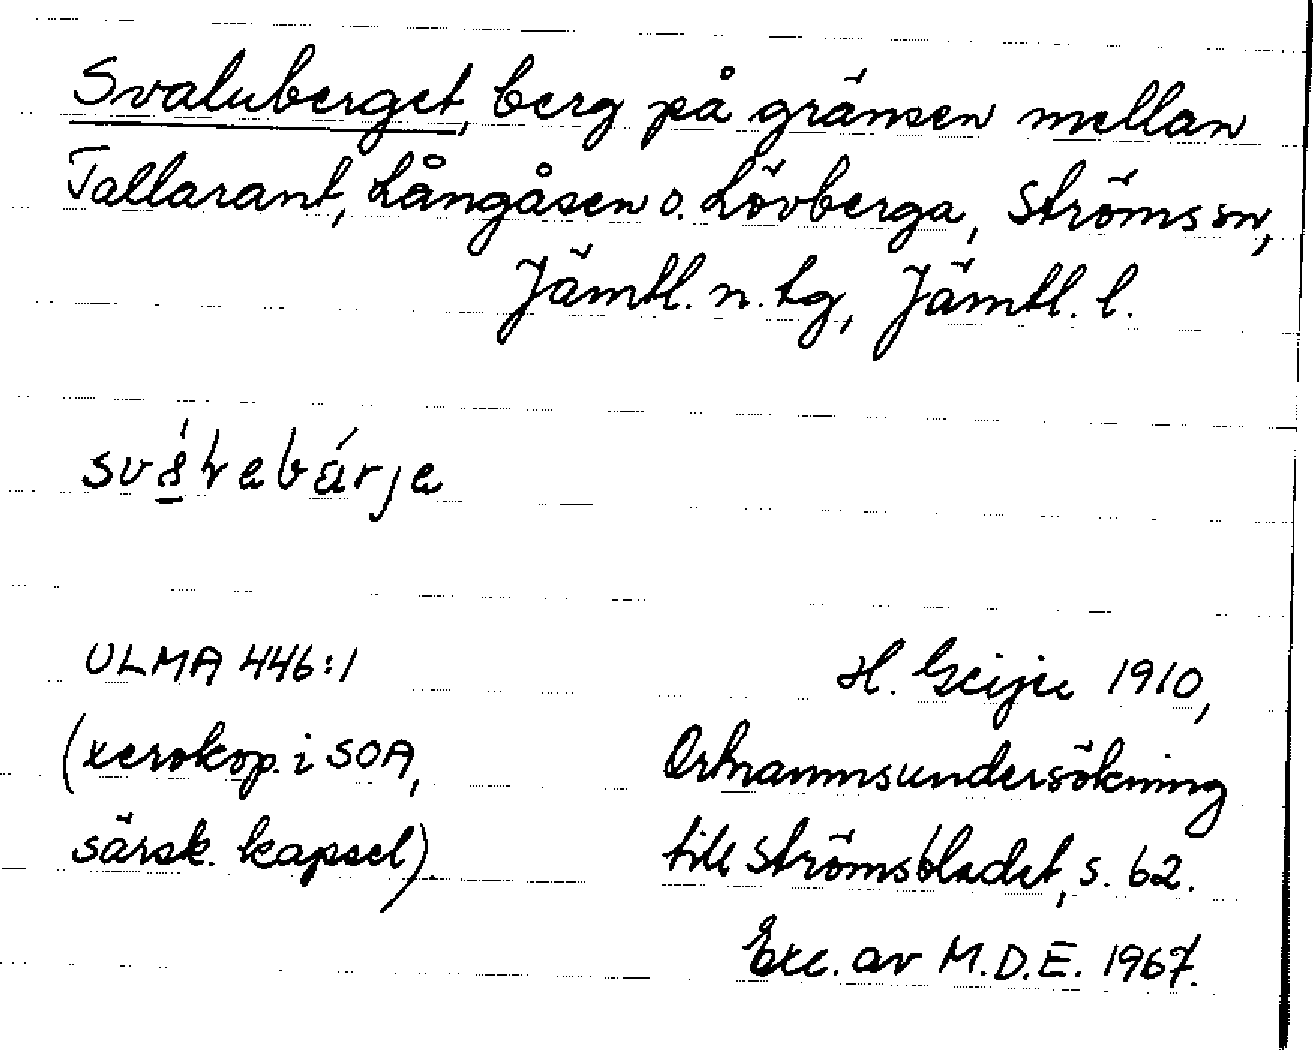 Svaluberget, berg på gränsen mellan
Tallarant, Långåsen o. Lövberga, Ströms sn,
Jämtl. n. tg, Jämtl. l.
ULMA 446:1
(xerokop. i SOA,
särsk. kapsel).
H. Geijer 1910,
Ortnamnsundersökning
till Strömsbladet, s. 62.
Exc. av M.D.E. 1967.